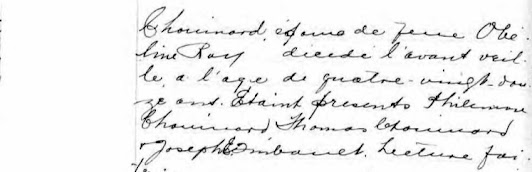 Chouinard, époux de feue Obe-
line Roy decedé l'avant veil-
le, a l'age de quatre-vingt-dou-
ze ans. Etaint présents Philemon
Chouinard Thomas Chouinard
& Joseph Imbeault. Lecture fai-